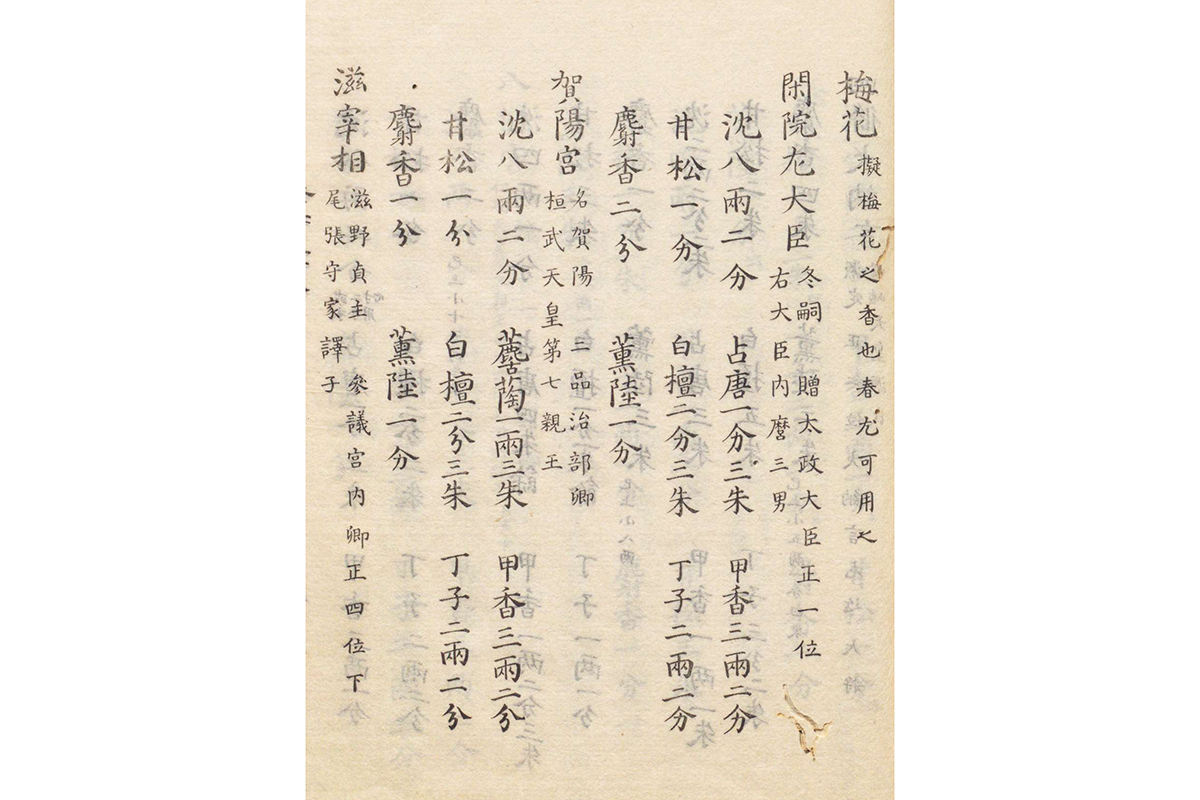 梅花 擬梅花之香也春尤可用之
閑院左大臣 冬嗣 贈太政大臣正一位
右大臣内麿三男
沈八兩二分 占唐一分三朱 甲香三兩二分
甘松一分 白檀二分三朱 丁子二兩二分
麝香二分 薫陸一分
賀陽宮 名賀陽三品治部卿
桓武天皇第七親王
沈八兩二分 一兩三朱 甲香三兩二分
甘松一分 白檀二分三朱 丁子二兩二分
麝香一分 薫陸一分
滋宰相 滋野貞主 參議宮内卿正四位下
尾張守家譯子